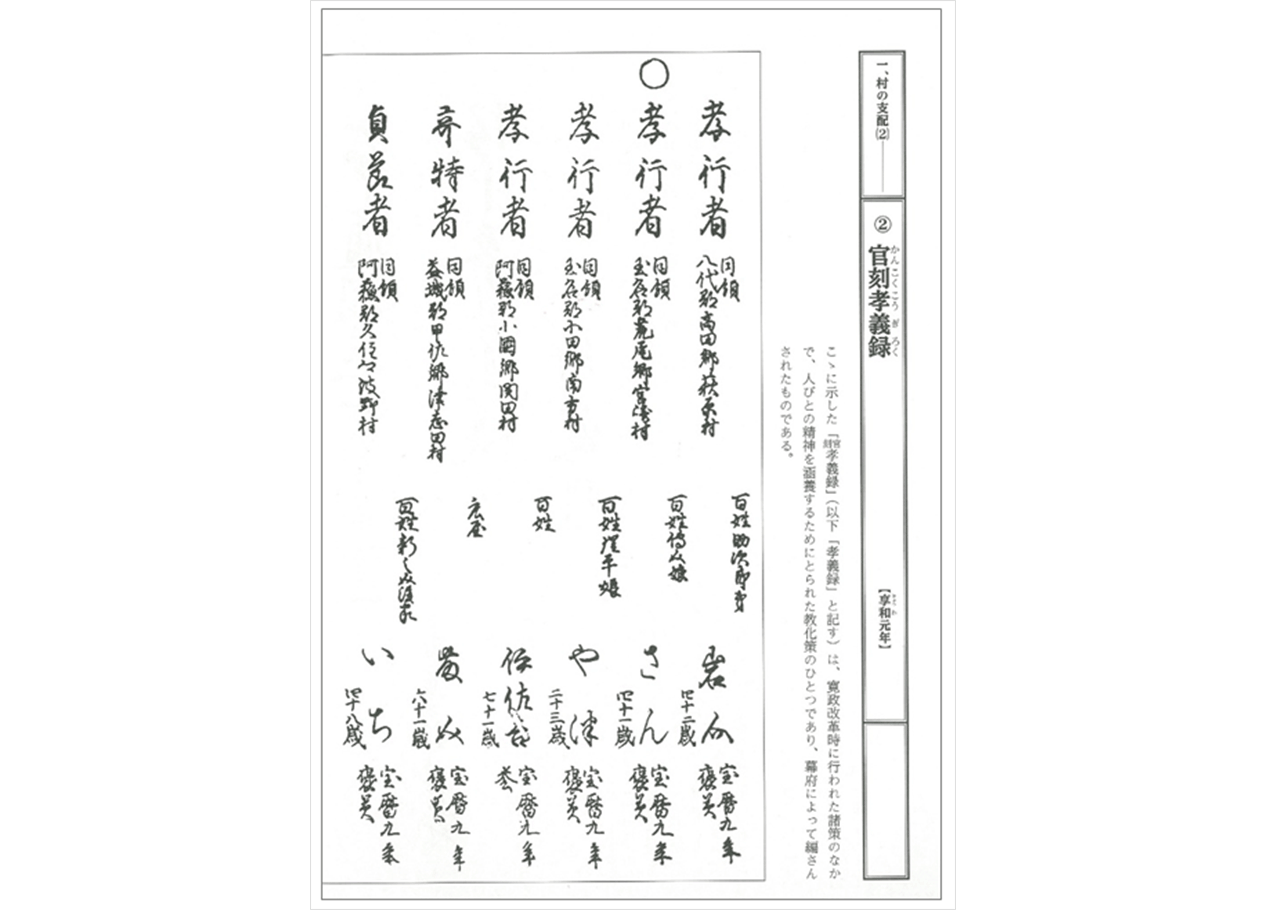 一、村の支配(2)
② 官刻孝義録
かんこくこうぎろく
【享和元年】
きょうわ
こゝに示した「官刻孝義録」(以下「孝義録」と記す)は、寛政改革時に行われた諸策のなか
で、人びとの精神を涵養するためにとられた教化策のひとつであり、幕府によって編さん
されたものである。
孝行者 同領 八代郡高田郷萩原村 百姓助次郎弟 岩 四十二歳 宝暦九年 褒美
○孝行者 同領 玉名郡荒尾郷宮崎村 百姓 さん 四十一歳 宝暦九年 褒美
孝行者 同領 玉名郡小田郷 百姓 娘 やつ 二十三歳 宝暦九年 褒美
孝行者 同領 阿蘇郡小国郷関田村 百姓 七十一歳 宝暦九年
奇特者 同領 益城郡甲佐郷津志田村 庄屋 六十一歳 宝暦九年 褒美
貞節者 同領 阿蘇郡久住 波野村 百姓 後家 いち 四十八歳 宝暦九年 褒美